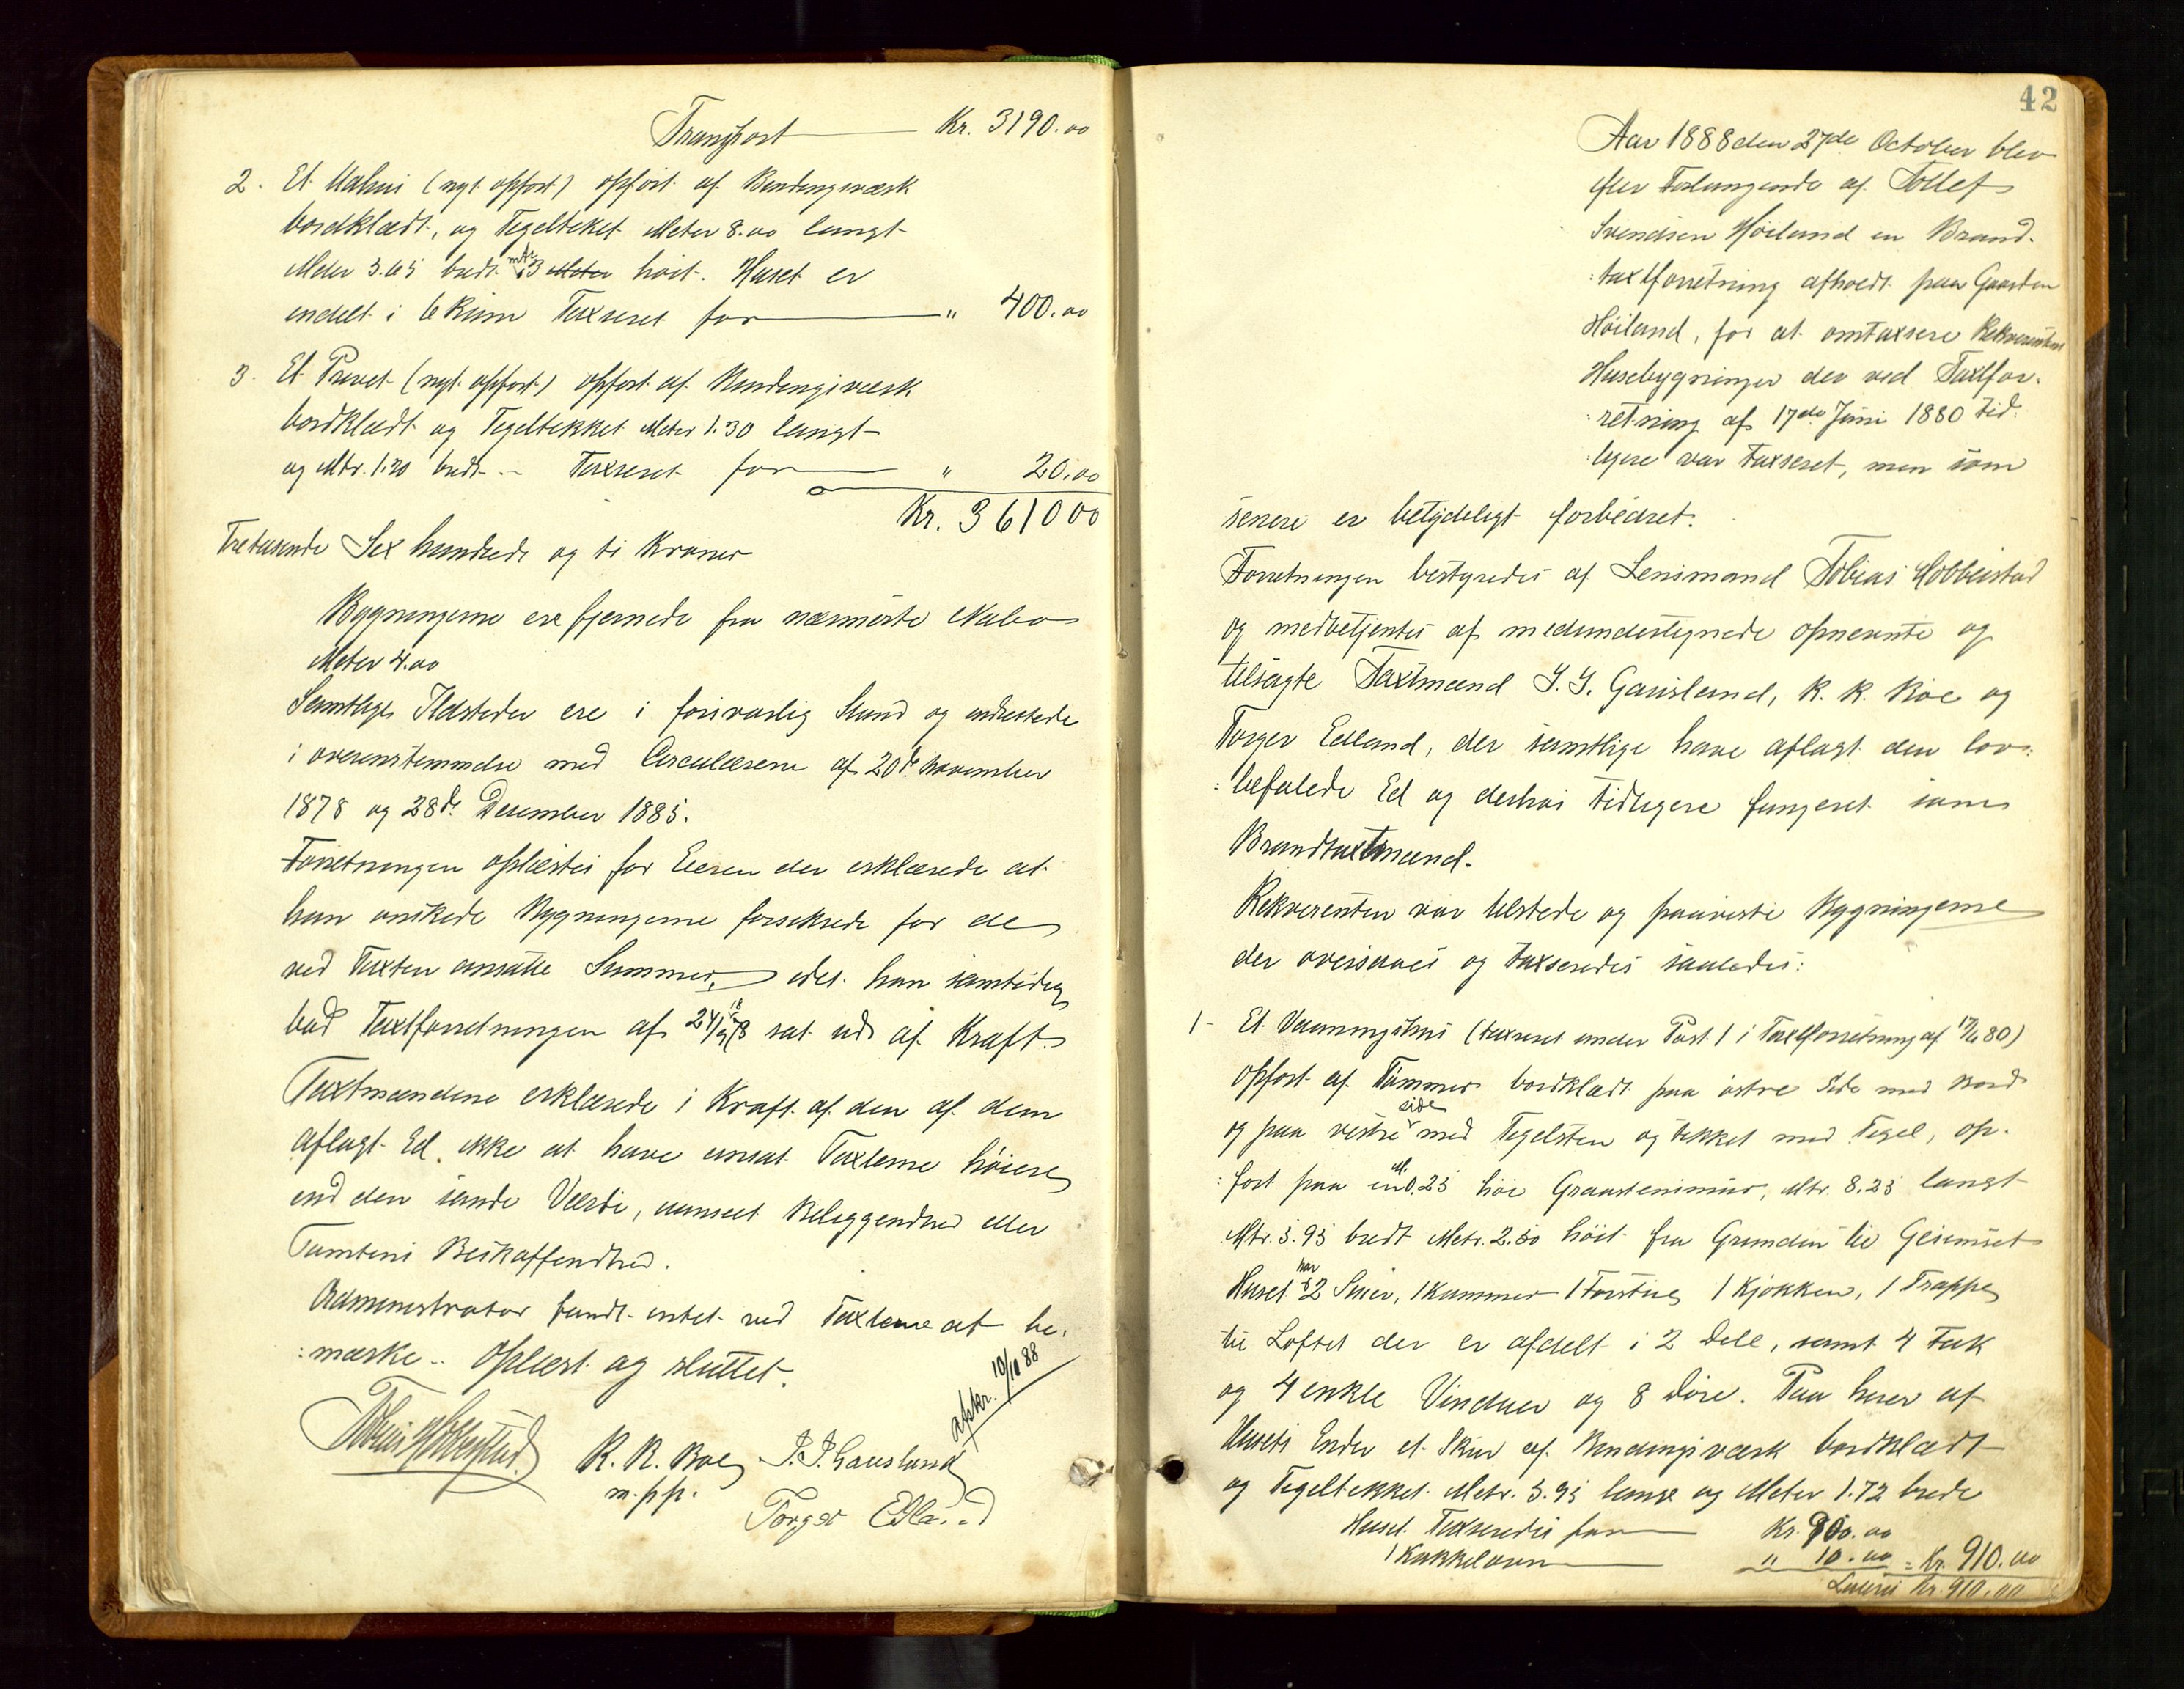 Transport Kr. 3190.00
2. Et Udhus (nyt opført) opført af Bindingsværk
bordklædt, og Tegeltekket Meter 8.00 langt
Meter 3.65 bredt mtr 3 Meter høit. Huset er
indelt i 6 Rum Taxseret for " 400.00
3. Et Privet (nyt opført) opført af Bindingsværk
bordklædt og Tegeltekket Meter 1.30 langt
og Mtr. 1.20 bredt. Taxseret for " 20.00
Kr. 3610 00
Tretusende Sex hundrede og ti Kroner
Bygningerne ere fjernede fra nærmeste Nabo
Meter 4.00
Samtlige Ildsteder ere i forsvarlig Stand og indrettede
i overensstemmelse med Circulærerne af 20de November
1878 og 28de Desember 1885.
Forretningen oplæstes for Eieren der erklærede at
han ønskede Bygningerne forsikrede for de
ved Taxten ansatte Summer, idet han samtidig
bad Taxtforretningen af sat ud af Kraft.
Taxtmændene erklærede i Kraft af den af dem
aflagt Ed ikke at have ansat Taxterne høiere
end den sande Værdi, uanseet Beliggenhed eller
Tomtens Beskaffenhed.
Administrator fandt intet ved Taxterne at be-
:mærke.. Oplæst og sluttet.
afskr. 10/10 88
Tobias Hobbestad. R. R. Boe J. J. Gausland
m. p. p.
Torger Edland
42
Aar 1888 den 27de October blev
efter Forlangende af Tollef
Svendsen Høiland en Brand-
:taxtforretning afholdt paa Gaarden
Høiland, for at omtaxsere Rekverentens
Husebygninger der ved Taxtfor-
:retning af 17de Juni 1880 tid-
:ligere var taxseret, men som
senere er betydeligt forbedret.
Forretningen bestyredes af Lensmand Tobias Hobbestad
og medbetjentes af medundertegnede opnevnte og
tilsagte Taxtmænd J. J. Gausland, R. R. Boe og
Torger Edland, der samtlige have aflagt den lov-
:befalede Ed og desuden tidligere fungeret som
Brandtaxtmænd.
Rekverenten var tilstede og paaviste Bygningerne
der oversaaes og taxseredes saaledes:
1- Et Vaaningshus (taxseret under Post 1 i Taxtforretning af 17/6 80)
opført af Tømmer bordklædt paa østre Side med Bord
og paa vestre side med Tegelsten og tekket med Tegel, op-
:ført paa en M. 0.25 høi Graastensmur, Mtr. 8.25 langt
Mtr. 5.95 bredt Metr. 2.50 høit fra Grunden til Gesimset
Huset har 2 Stuer, 1 Kammer 1 Forstue 1 Kjøkken, 1 Trappe
til Loftet der er afdelt i 2 Dele, samt 4 Fak
og 4 enkle Vinduer og 8 Døre. Paa hver af
Husets Ender et Skur af Bindingsværk bordklædt
og Tegeltekket Metr. 5.95 lange og Meter 1.72 brede
Huset Taxseredes for Kr. 900.00
1 Kakkelovn " 10.00 = Kr. 910.00
Lateris Kr. 910.00